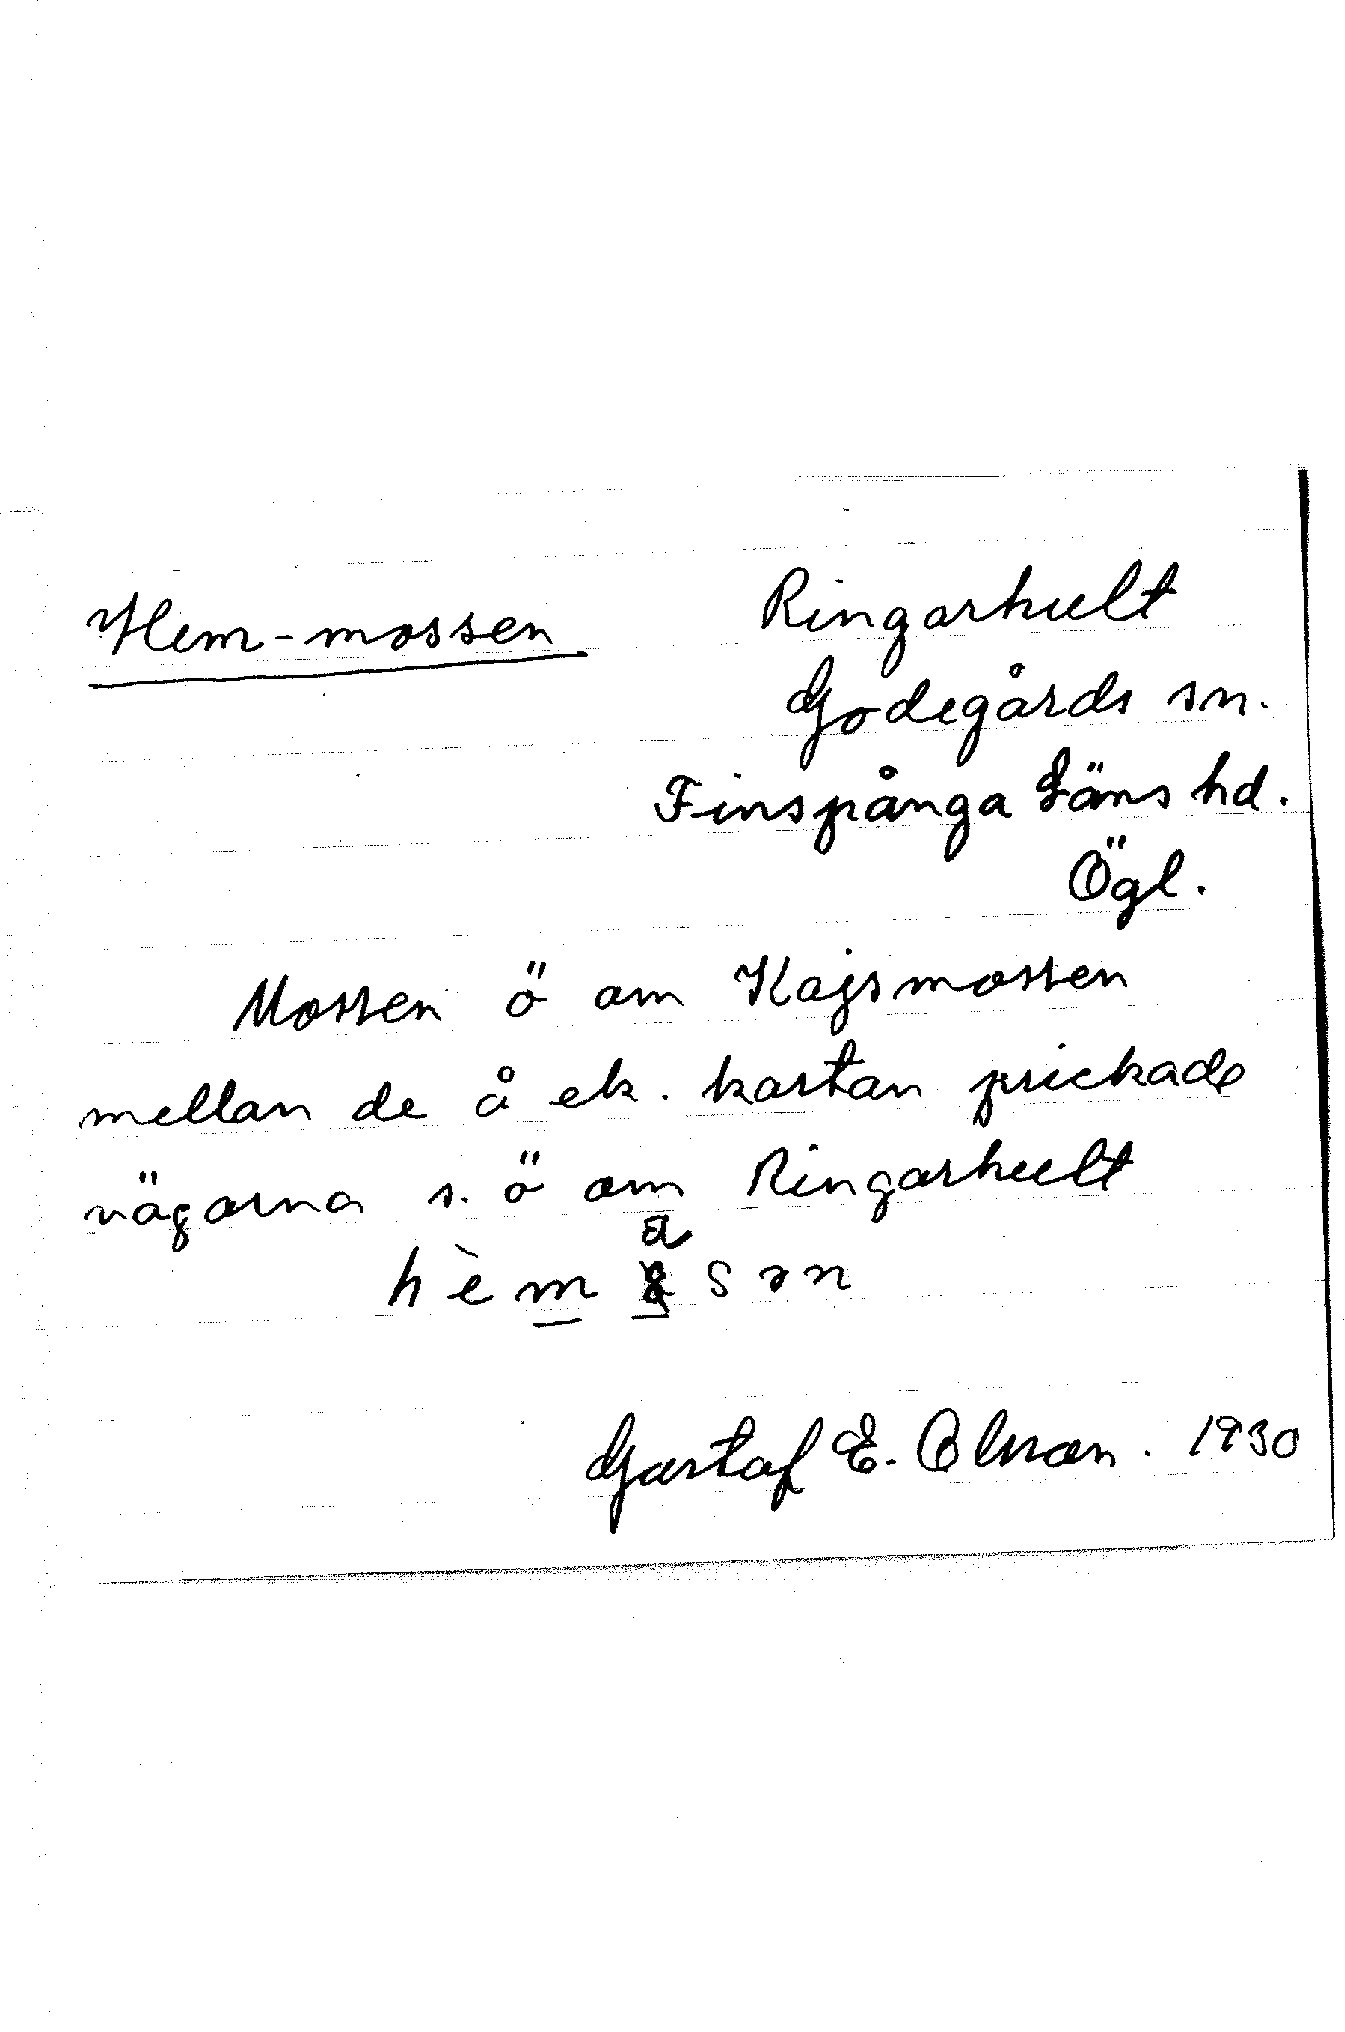 Hem-mossen
Ringarhult
Godegårds sn.
Finspånga Läns hd.
Ögl.
Mossen ö om Kajsmossen
mellan de å ek. kartan prickade
vägarna s. ö om Ringarhult
Gustaf E. Olsson. 1930